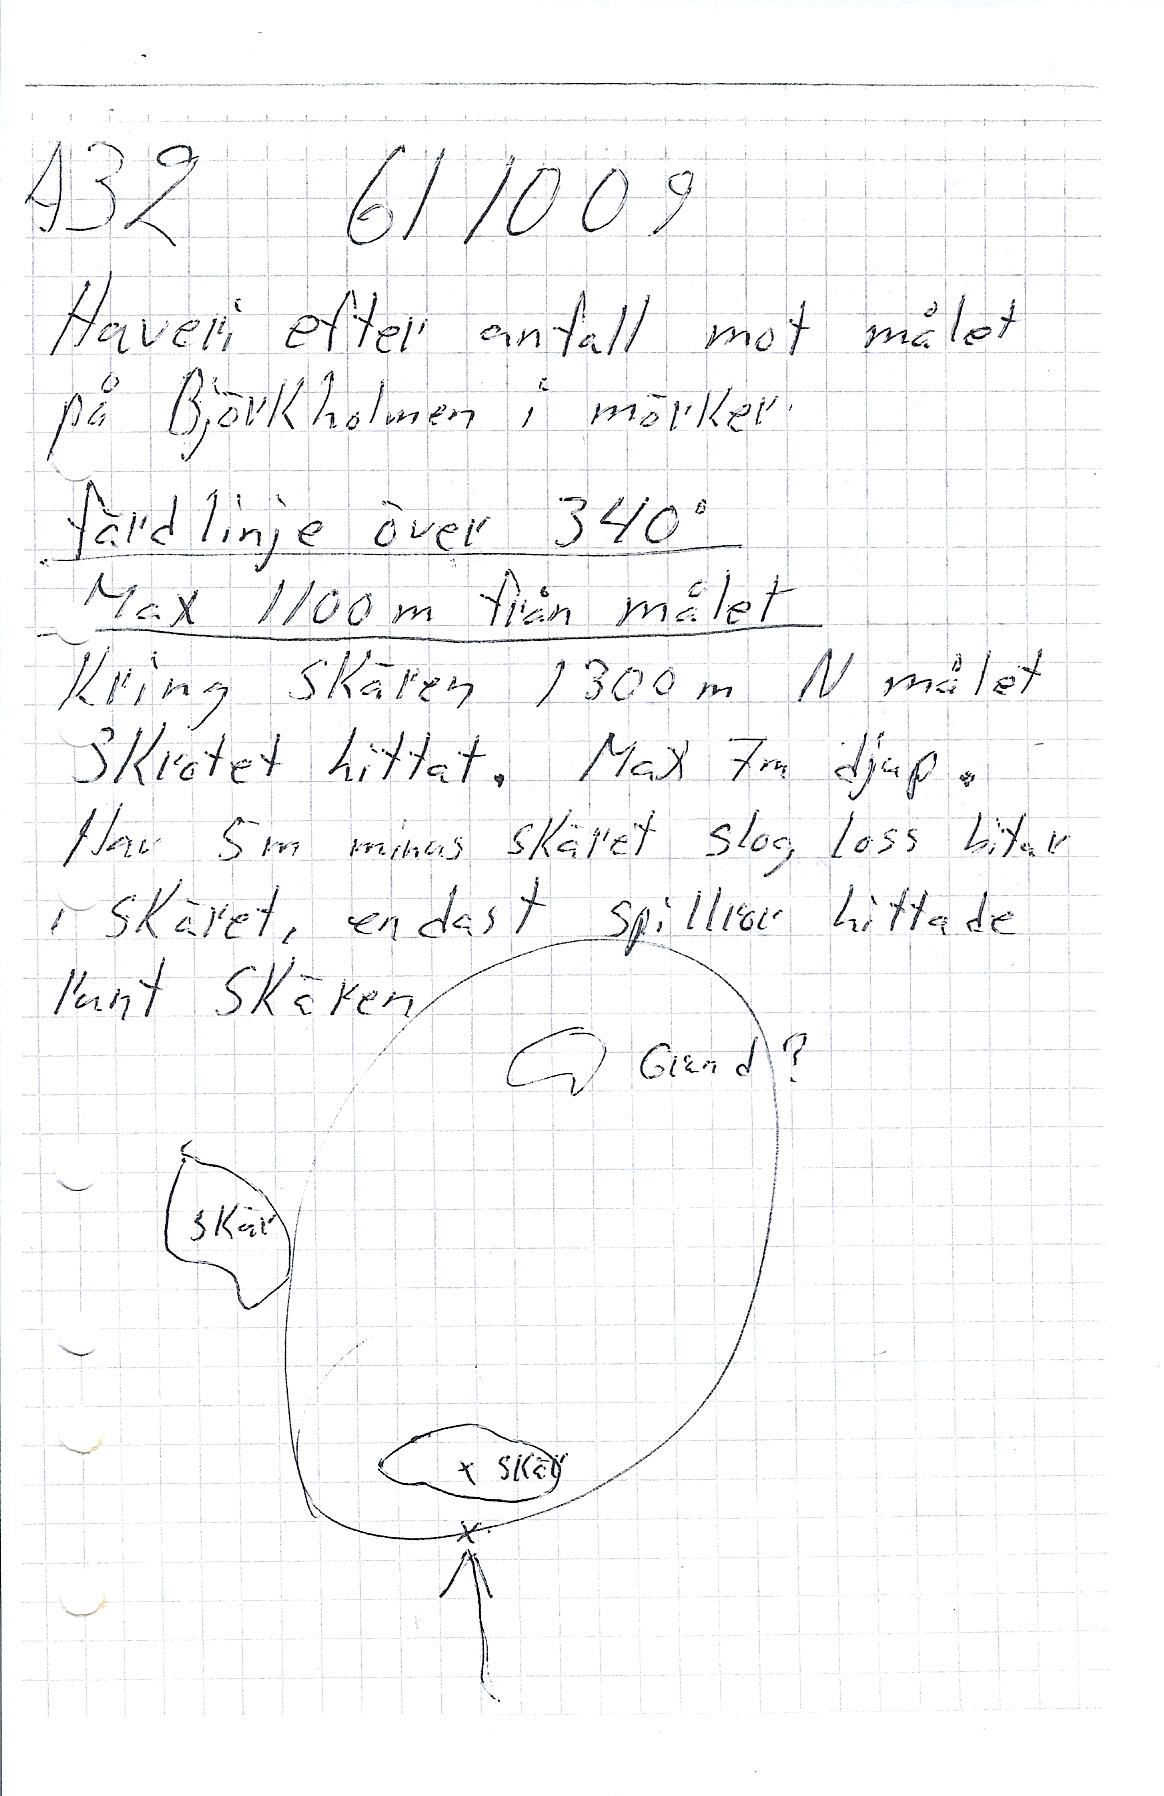 A32 611009
Haveri efter anfall mot målet
på Björkholmen i mörker.
färdlinje över 340°
Max 1100m från målet
Kring skären 1300m N målet
Skrotet hittat. Max 7m djup.
5m minus skäret slog loss bitar
i skäret, endast spillror hittade
runt skären
Grund?
skär
x skär
x